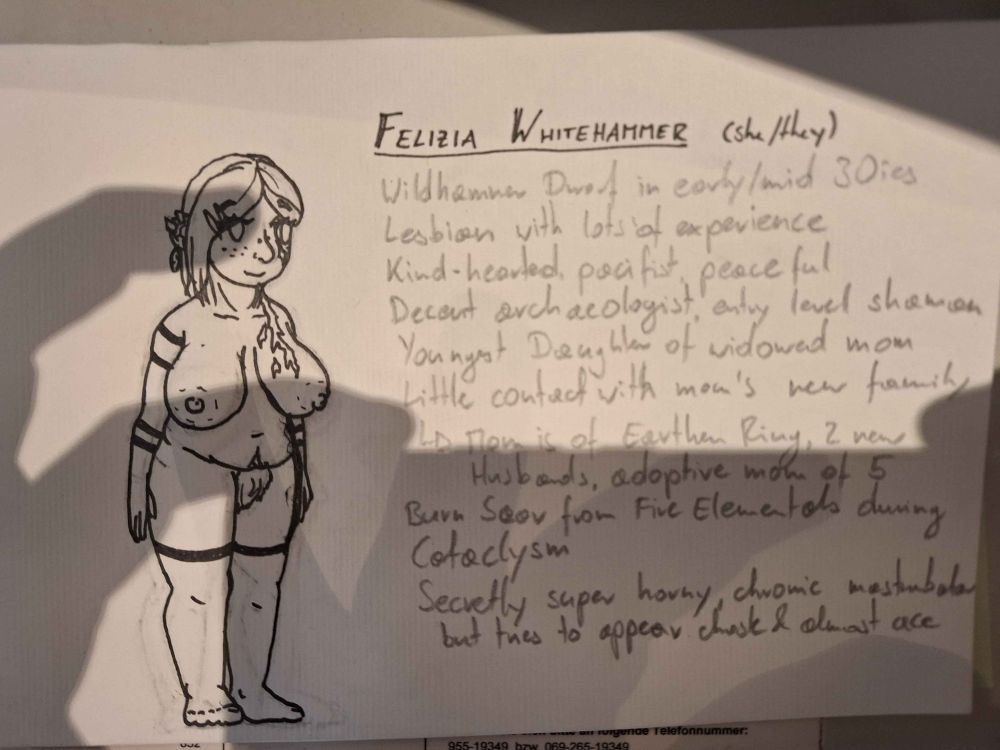 FELIZIA WHITEHAMMER (she/they)
Wildhammer Dwarf in early/mid 30ies
Lesbian with lots of experience
Kind-hearted, pacifist, peaceful
Decent archaeologist, entry level shaman
Youngest Daughter of widowed mom
Little contact with mom's new family
↳ Mom is of Earthen Ring, 2 new
Husbands, adoptive mom of 5
Burn Scar from Fire Elementals during
Cataclysm
Secretly super horny, chronic masturbator
but tries to appear & almost ace
an folgende Telefonnummer:
955-19349 bzw. 069-265-19349